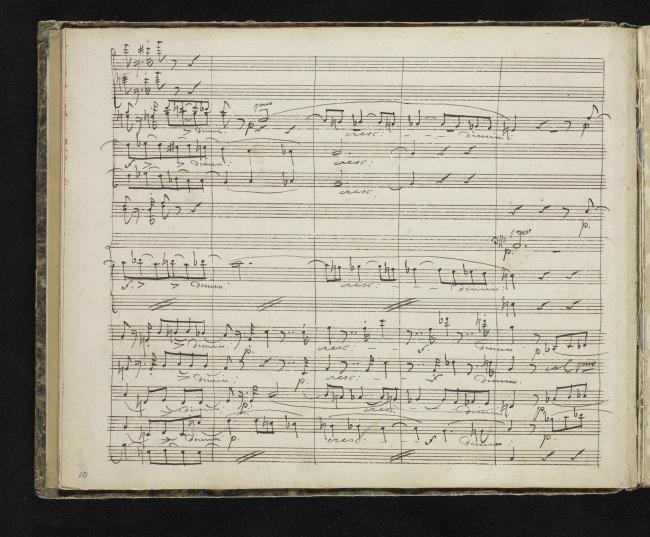 1mo
> dimin: p. cresc: - - - dimin: p.
f. > > dimin: cresc:
cresc:
p.
1mo
p.
f. > > dimin: cresc: - - - dimin:
> dimin: p. cresc: - - f. dimin: p.
> dimin: p. cresc: - - f dimin: col 1mo
> dimin: p. cresc: - - dimin: p.
> dimin: p. cresc: f dimin: p.
10